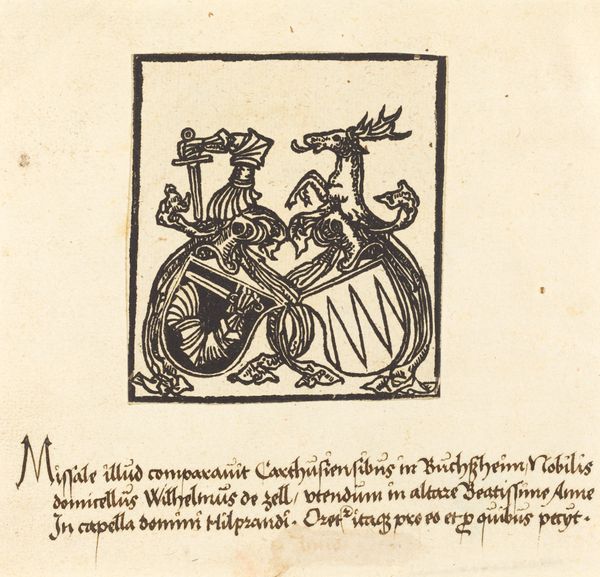 Missale illud comparavit Carthusiensibus in Buchßheim / Nobilis
domicellus Wilhelmus de zell / vtendum in altare Beatissime Anne
In capella domini Hilprandi · Oretᷣ itaqꝫ pro eo et ꝑ quibus petyt ·